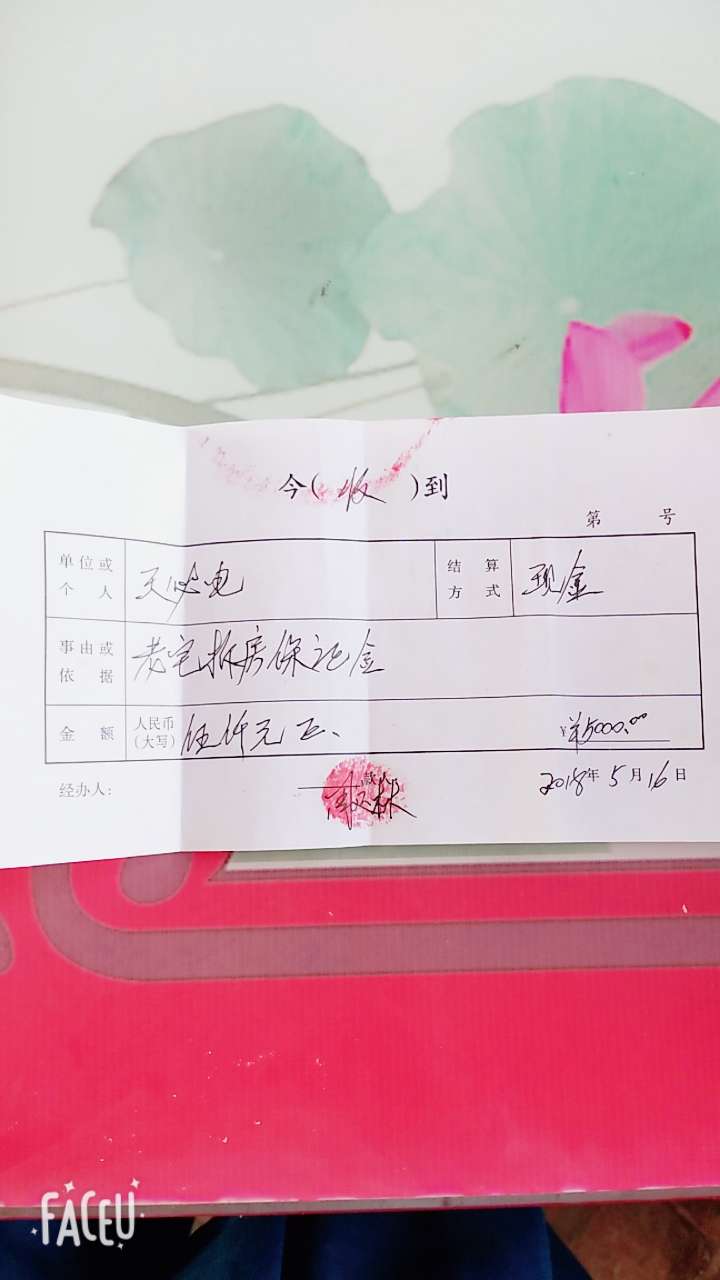 今(收)到
第 号
单位或个人 电 结算方式 现金
事由或依据 老宅拆房保证金
金额 人民币(大写) 伍仟元正、 ¥ 5000.00
经办人: 款人 林 2018年5月16日
FACEU